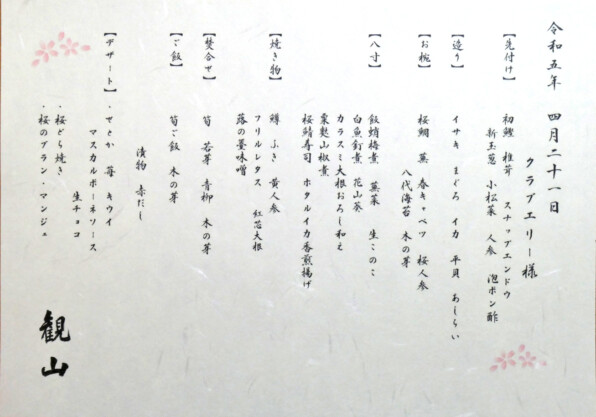 令和五年 四月二十一日
クラブエリー様
【先付け】 初鰹 椎茸 スナップエンドウ
新玉葱 小松菜 人参 泡ポン酢
【造り】 イサキ まぐろ イカ 平貝 あしらい
【お椀】 桜鯛 蕨 春キャベツ 桜人参
八代海苔 木の芽
【八寸】 飯蛸梅煮 蓴菜 生このこ
白魚釘煮 花山葵
カラスミ大根おろし和え
粟麩山椒煮
桜鯖寿司 ホタルイカ香煎揚げ
【焼き物】 鱒 ふき 黄人参
フリルレタス 紅芯大根
蕗の薹味噌
【焚合せ】 筍 若芽 青柳 木の芽
【ご飯】 筍ご飯 木の芽
漬物 赤だし
【デザート】 ・せとか 苺 キウイ
マスカルポーネソース
・桜どら焼き 生チョコ
・桜のブラン・マンジェ
観山